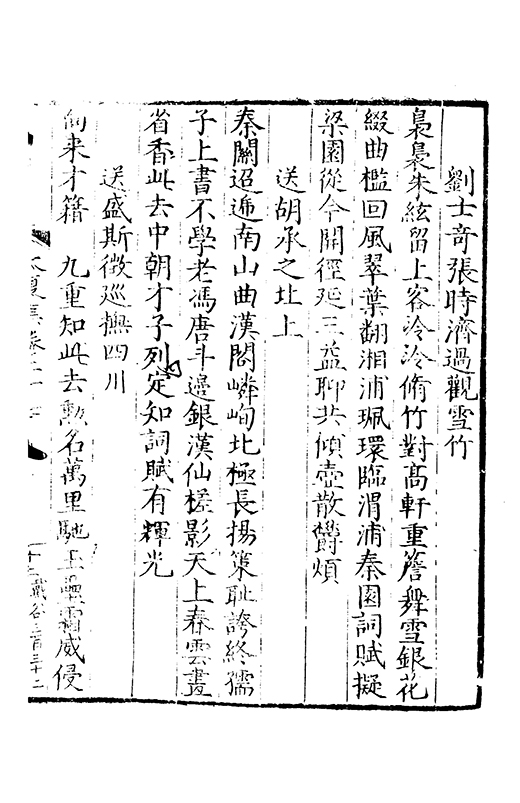 劉士奇張時濟過觀雪竹
裊裊朱絃留上客泠泠脩竹對高軒重簷舞雪銀花
綴曲檻回風翠葉翻湘浦珮環臨渭浦秦園詞賦擬
梁園從今開徑延三益聊共傾壺散欝煩
送胡承之北上
秦關迢遞南山曲漢閣嶙峋北極長揚策耻誇終孺
子上書不學老馮唐斗邊銀漢仙槎影天上春雲畫
省香此去中朝才子列定知詞賦有輝光
送盛斯徵巡撫四川
向来才籍 九重知此去勲名萬里馳玉壘霜威侵